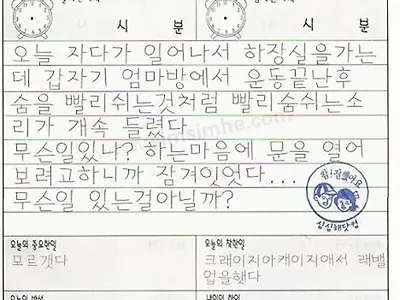 시 분 시 분
오늘 자다가 일어나서 하장실을가는
데 갑자기 엄마방에서 운동끝난후
숨을 빨리쉬는것처럼 빨리숨쉬는소
리가 개속 들렸다
무슨일있나? 하는마음에 문을 열어
보려고하니까 잠겨잇었다...
무슨일 있는걸아닐까?
참! 잘했어요
심심해닷컴
오늘의 중요한일 오늘의 착한일
모르겟다 크래이지아케이지애서 래밸
업을햇다